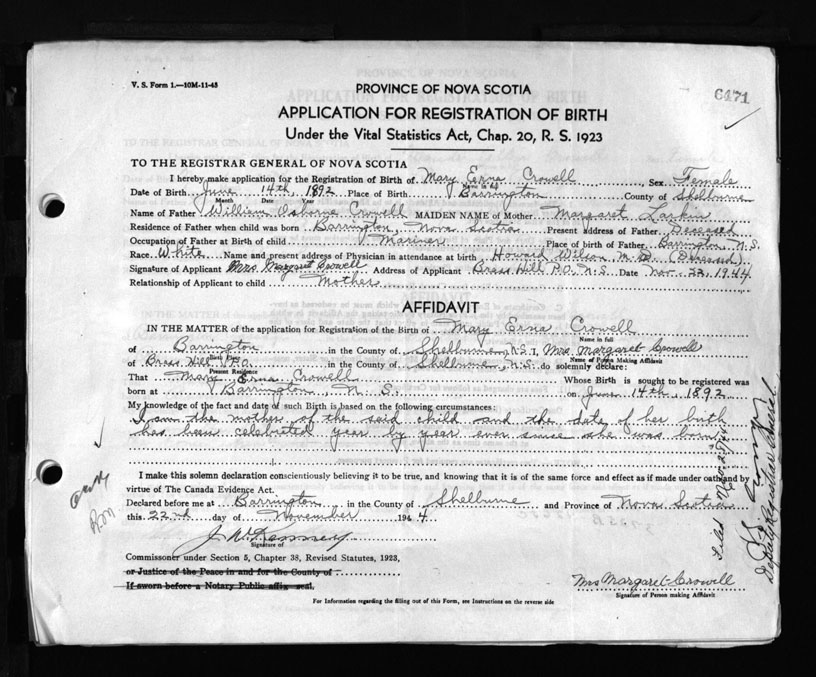 V. S. Form 1.—10M-11-43
6471
PROVINCE OF NOVA SCOTIA
APPLICATION FOR REGISTRATION OF BIRTH
Under the Vital Statistics Act, Chap. 20, R. S. 1923
TO THE REGISTRAR GENERAL OF NOVA SCOTIA
I hereby make application for the Registration of Birth of Mary Erna Crowell Sex Female
Name in full
Date of Birth June 14th, 1892 Place of Birth Barrington County of Shelburne
Month Date Year
Name of Father William Osborne Crowell MAIDEN NAME of Mother Margaret Larkin
Residence of Father when child was born Barrington, Nova Scotia Present address of Father Deceased
Occupation of Father at Birth of child Mariner Place of birth of Father Barrington N.S.
Race White Name and present address of Physician in attendance at birth Howard Wilson, M.D. (Deceased)
Signature of Applicant Mrs. Margaret Crowell Address of Applicant Brass Hill P.O. N.S. Date Nov. 22, 1944
Relationship of Applicant to child Mother
AFFIDAVIT
IN THE MATTER of the application for Registration of the Birth of Mary Erna Crowell
Name in full
of Barrington in the County of Shelburne, N.S. I, Mrs. Margaret Crowell
Birth Place Name of Person Making Affidavit
of Brass Hill P.O. in the County of Shelburne, N.S. do solemnly declare:
Present Residence
That Mary Erna Crowell Whose Birth is sought to be registered was
born at Barrington, N. S. on June 14th, 1892.
My knowledge of the fact and date of such Birth is based on the following circumstances:
I am the mother of the said child and the date of her birth
has been celebrated year by year ever since she was born.
I make this solemn declaration conscientiously believing it to be true, and knowing that it is of the same force and effect as if made under oath and by
virtue of The Canada Evidence Act.
Declared before me at Barrington in the County of Shelburne and Province of Nova Scotia
this 22nd day of November 1944
Signature of
Commissoner under Section 5, Chapter 38, Revised Statutes, 1923,
or Justice of the Peace in and for the County of
If sworn before a Notary Public affix seal.
Mrs Margaret Crowell
Signature of Person making Affidavit
For Information regarding the filling out of this Form, see Instructions on the reverse side
Filed Nov. 25/44
Deputy Registrar General